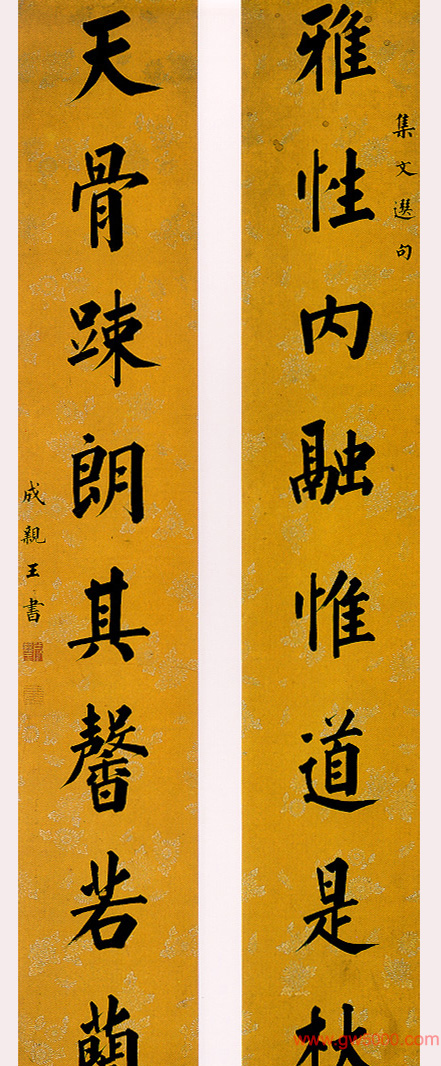 集文選句
雅性内融惟道是杖
天骨踈朗其馨若蘭
成親王書
www.gw5000.com